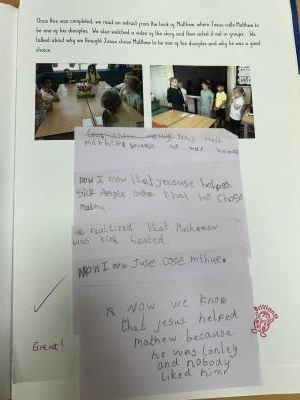 Once this was completed, we read an extract from the book of Matthew, where Jesus calls Matthew to
be one of his disciples. We also watched a video of the story and then acted it out in groups. We
talked about why we thought Jesus chose Matthew to be one of his disciples and why he was a good
choice.
mathew because he was
now I know that jeasuse helped
Sick people and that he Chose
he realised that Mathamew
was kind heated.
Now I now Juse cose mthue.
Now we know
that jesus helped
mathew because
he was lonley
and nobody
liked him
Great!
Brilliant